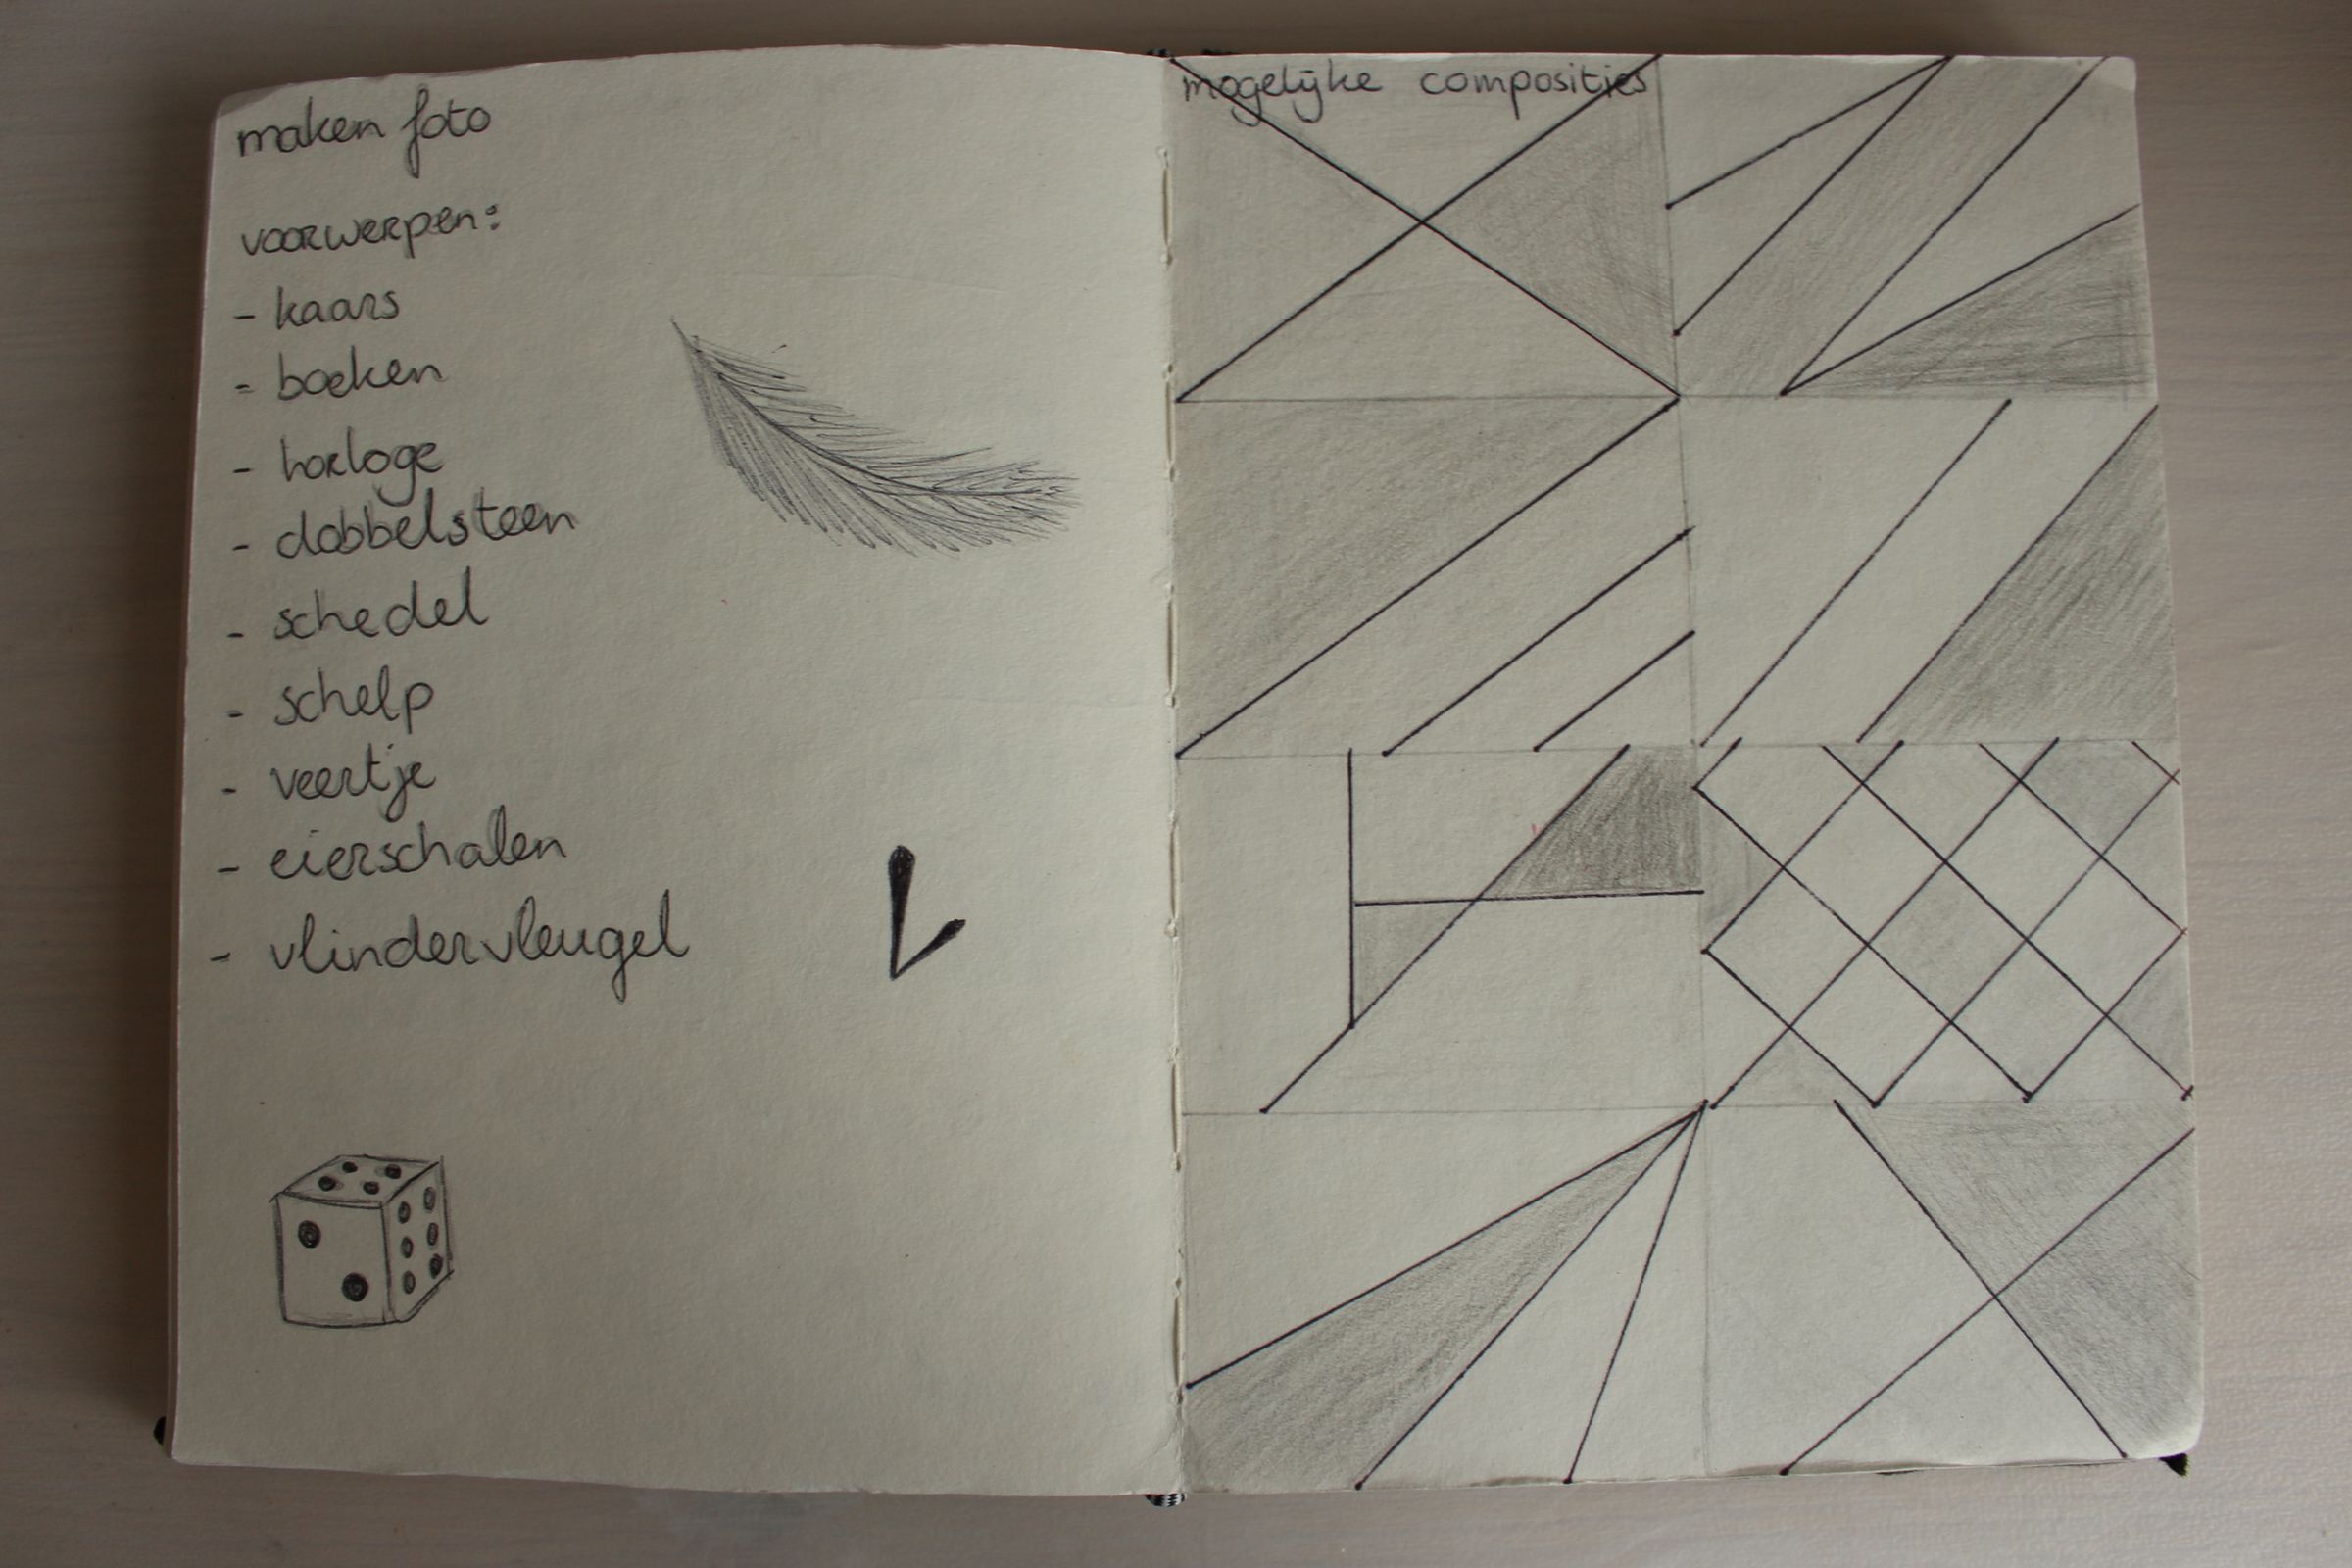 maken foto
voorwerpen:
- kaars
- boeken
- horloge
- dobbelsteen
- schedel
- schelp
- veertje
- eierschalen
- vlindervleugel
mogelijke composities